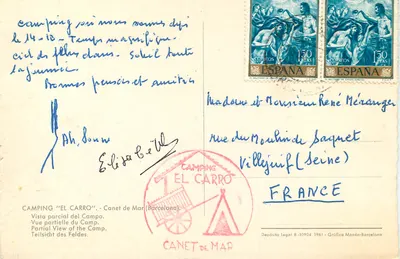 camping où nous sommes déjà
le 14-10. Temps magnifique
ciel de plus dans. Soleil toute
la journée.
Bonnes pensées et amitiés
Elisabeth
1'50
1'50
ESPAÑA
ESPAÑA
Madame et Monsieur René Méranger
rue du Moulin de Saquet
Villejuif (Seine)
FRANCE
CAMPING
EL CARRO
CANET DE MAR
CAMPING "EL CARRO". - Canet de Mar (Barcelona)
Vista parcial del Campo.
Vue partielle du Camp.
Partial View of the Camp.
Teilsicht des Feldes.